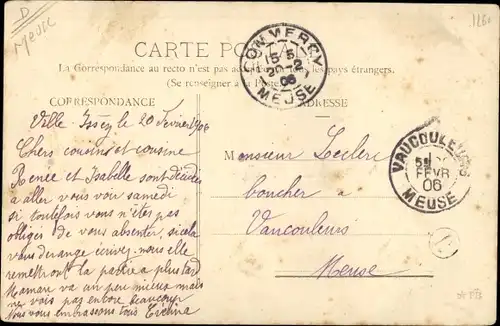 D
Meuse
CARTE POSTALE
La Correspondance au recto n'est pas acceptée par tous les pays étrangers.
(Se renseigner à la Poste)
COMMERCY
15-5
20-2
06
MEUSE
CORRESPONDANCE
ADRESSE
Ville-Issey le 20 Fevrier 1906
Chers cousins et cousine
Renée et Isabelle sont décidées
a aller vous voir samedi
si toutefois vous n'êtes pas
obligés de vous absenter, si cela
vous derange écrivez-nous elle
remettront la partie a plus tard
Maman va un peu mieux mais
ne vois pas encore beaucoup
Nous vous embrassons tous Evelina
Monsieur Leclerc
boucher à
Vaucouleurs
Meuse
VAUCOULEURS
FEVR
06
MEUSE